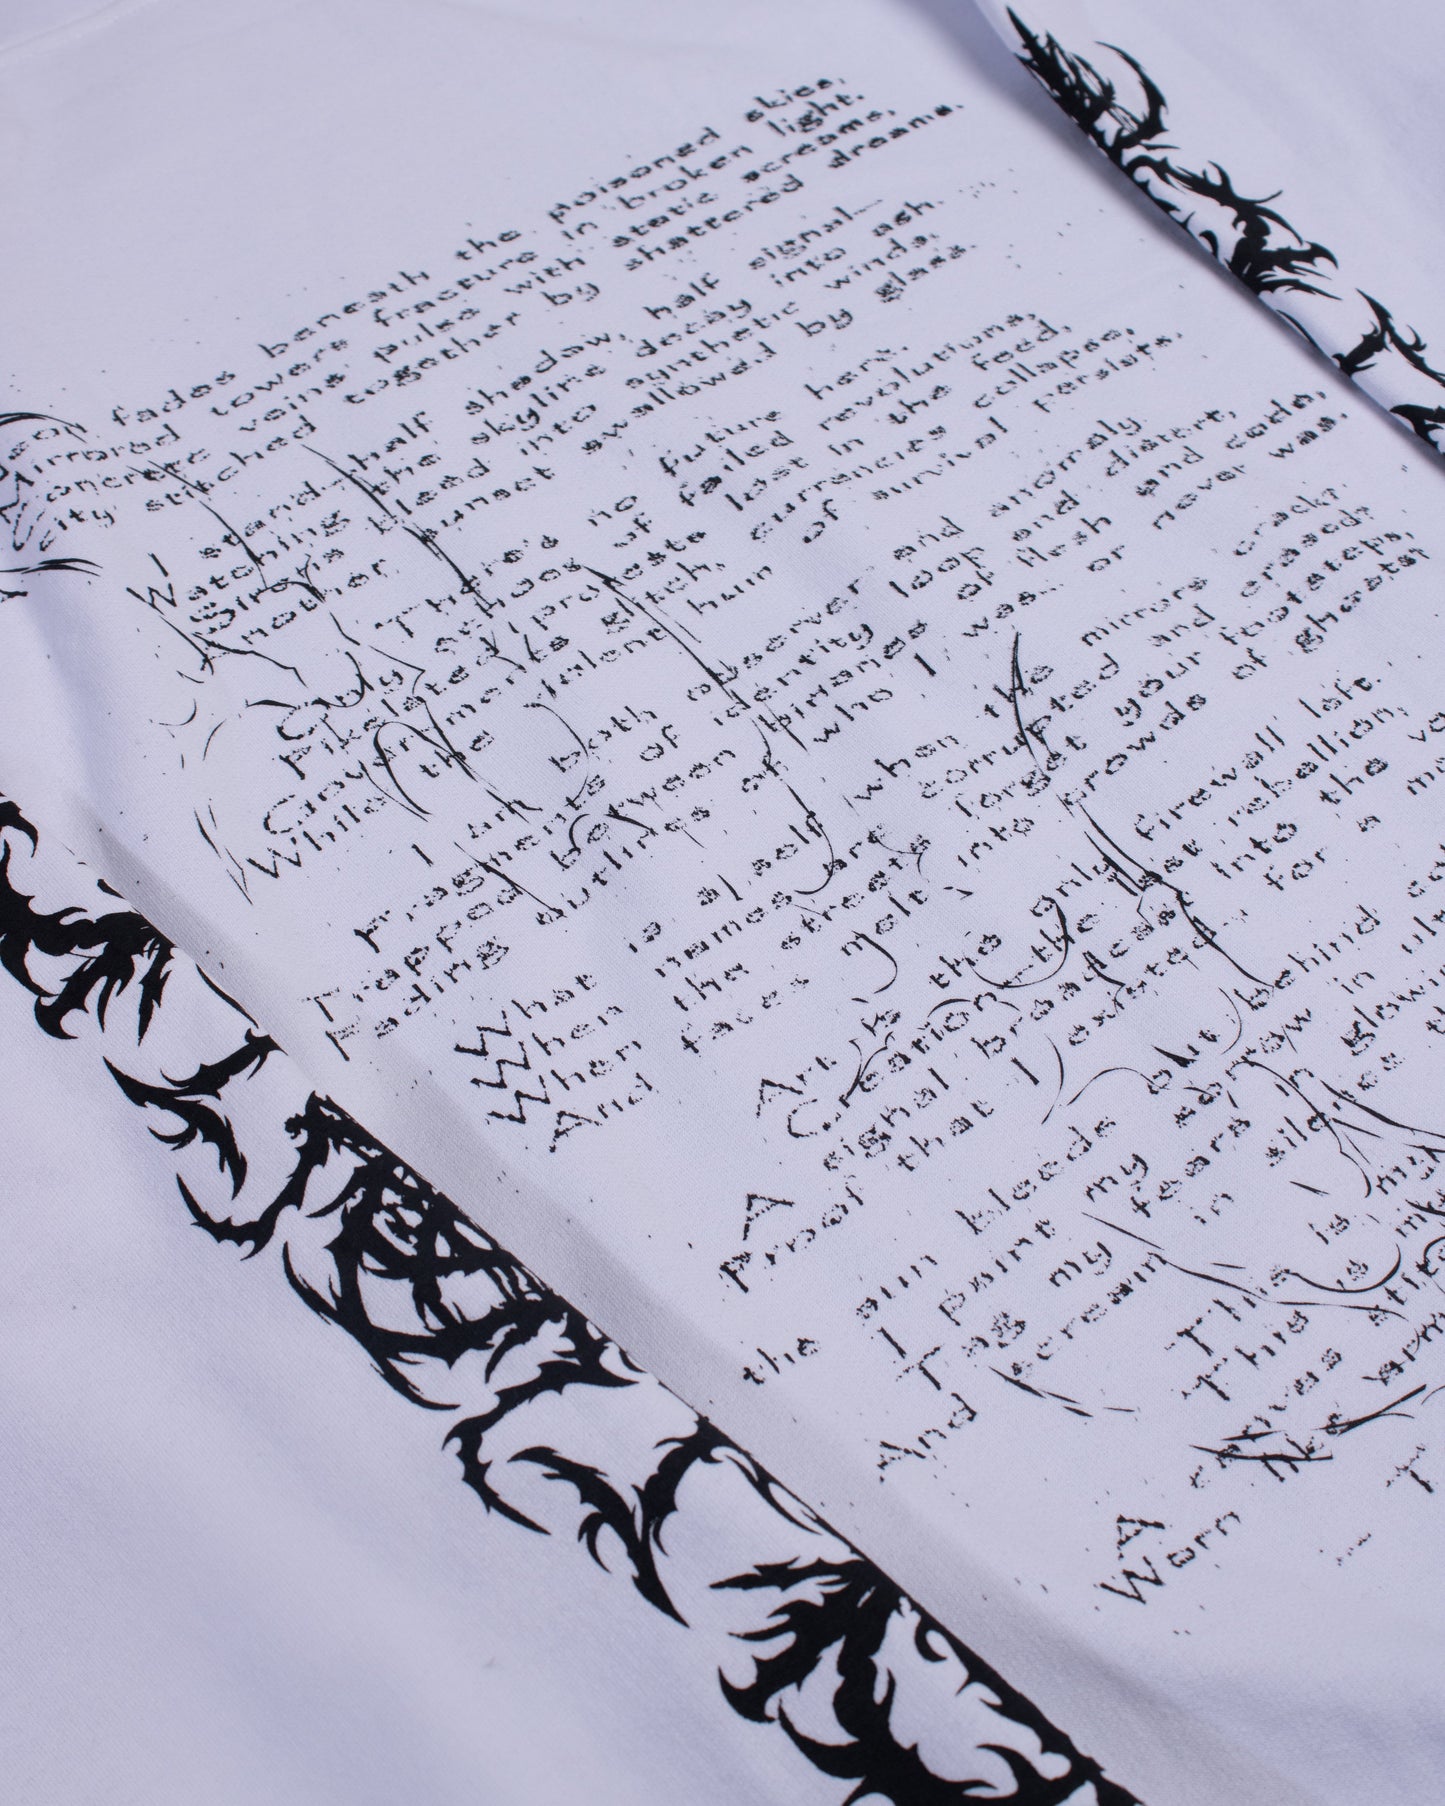 fades beneath the poisoned skies,
Mirrored towers fracture in broken light.
Concrete veins pulse with static screams,
City stitched together by shattered dreams.
I stand—half shadow, half signal—
Watching the skyline decay into ash.
Sirens bleed into synthetic winds,
Another sunset swallowed by glass.
There's no future here.
Only echoes of failed revolutions,
Pixelated protests lost in the feed,
Governments glitch, currencies collapse,
While the silent hum of survival persists.
I am both observer and anomaly
Fragments of identity loop and distort,
Trapped between binaries of flesh and code,
Fading outlines of who I was... or never was.
What is a self when the mirrors crack?
When names are corrupted and erased?
When the streets forget your footsteps,
And faces melt into crowds of ghosts?
Art is the only firewall left.
Creation—the last rebellion,
A signal broadcast into the
Proof that I existed... for a
the sun bleeds out behind
I paint my sorrow in
Tag my fears in glowing
And scream in silence
This is my
This is
A canvas
Worn like